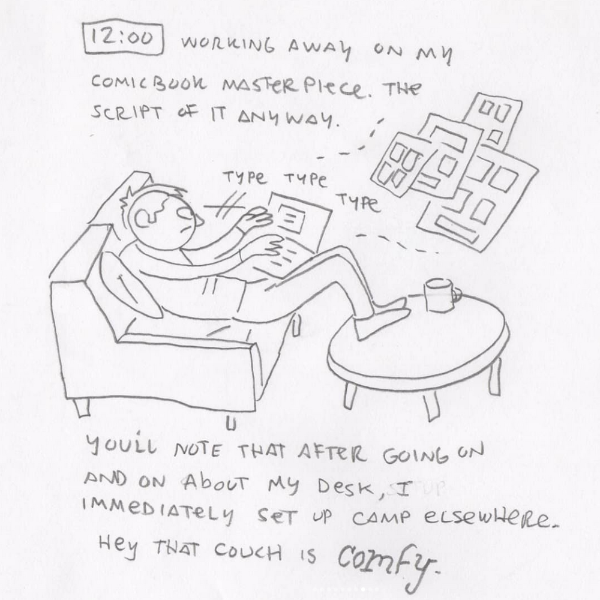 12:00 WORKING AWAY ON MY
COMICBOOK MASTERPIECE. THE
SCRIPT OF IT ANYWAY.
TYPE TYPE
TYPE
YOU'LL NOTE THAT AFTER GOING ON
AND ON ABOUT MY DESK, I
IMMEDIATELY SET UP CAMP ELSEWHERE.
HEY THAT COUCH IS COMFY.